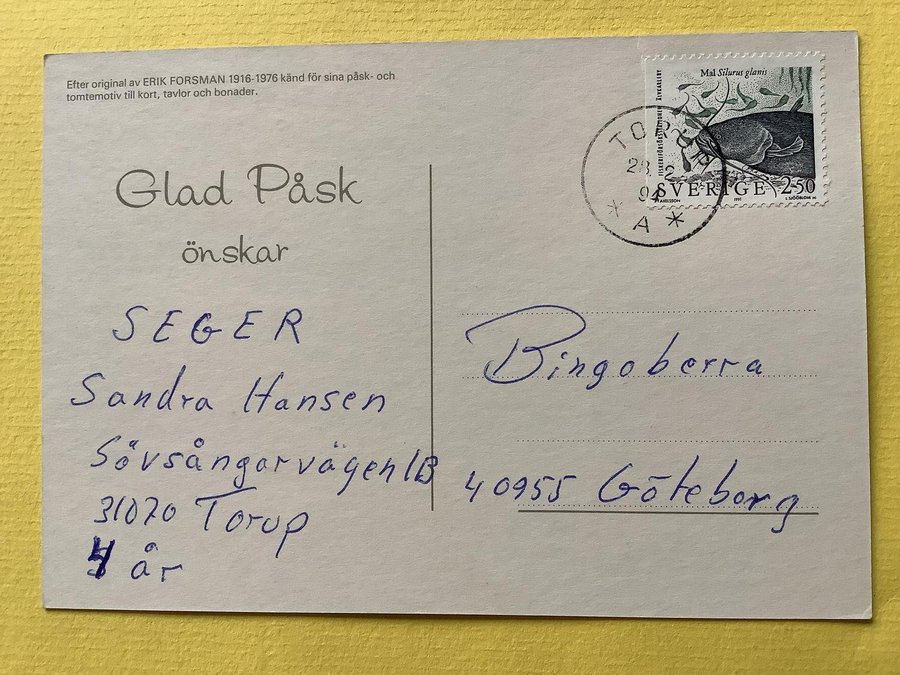 Efter original av ERIK FORSMAN 1916-1976 känd för sina påsk- och
tomtemotiv till kort, tavlor och bonader.
Glad Påsk
önskar
SEGER
Sandra Hansen
Sövsångarvägen 1B
31020 Torup
4 år
Mal Silurus glanis
SVERIGE 250
1991
TORUP
28. 2
91
* A *
Bingoberra
40955 Göteborg